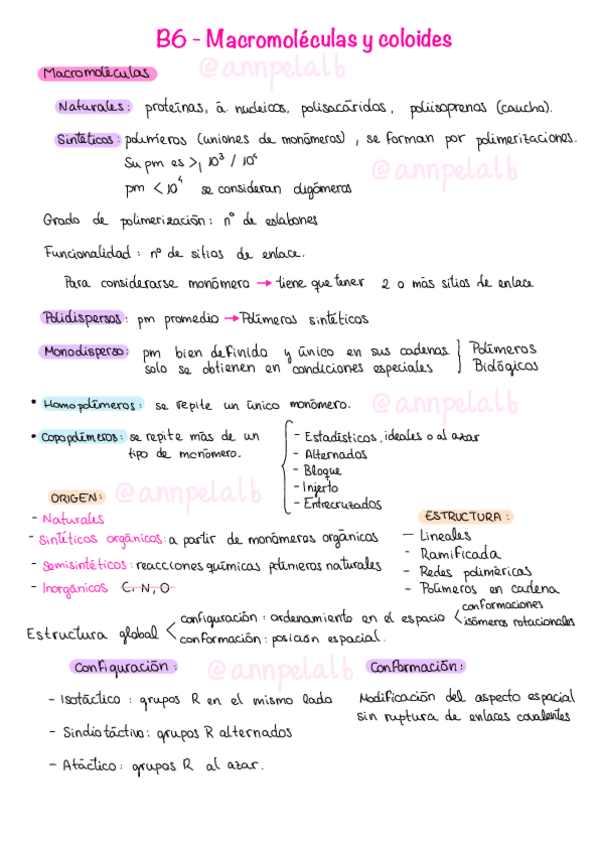 B6 - Macromoléculas y coloides
@annpelalb
Macromoléculas
Naturales: proteínas, á nucleicos, polisacáridos, poliisoprenos (caucho).
Sintéticos: polímeros (uniones de monómeros), se forman por polimerizaciones.
Su pm es ≥ 10³ / 10⁴
@annpelalb
pm < 10⁴ se consideran oligómeros
Grado de polimerización: nº de eslabones
Funcionalidad: nº de sitios de enlace.
Para considerarse monómero → tiene que tener 2 o más sitios de enlace
Polidispersos: pm promedio → Polímeros sintéticos
Monodisperso: pm bien definido y único en sus cadenas
solo se obtienen en condiciones especiales
Polímeros
Biológicos
• Homopolímeros: se repite un único monómero.
@annpelalb
• Copopolímeros: se repite más de un
tipo de monómero.
- Estadísticos, ideales o al azar
- Alternados
- Bloque
- Injerto
- Entrecruzados
@annpelalb
ORIGEN:
- Naturales
- Sintéticos orgánicos: a partir de monómeros orgánicos
- Semisintéticos: reacciones químicas polímeros naturales
- Inorgánicos C, N, O
ESTRUCTURA:
- Lineales
- Ramificada
- Redes poliméricas
- Polímeros en cadena
Estructura global
configuración: ordenamiento en el espacio
conformación: posición espacial.
conformaciones
isómeros rotacionales
Configuración:
@annpelalb
- Isotáctico: grupos R en el mismo lado
- Sindiotáctivo: grupos R alternados
- Atáctico: grupos R al azar.
Conformación:
Modificación del aspecto espacial
sin ruptura de enlaces covalentes